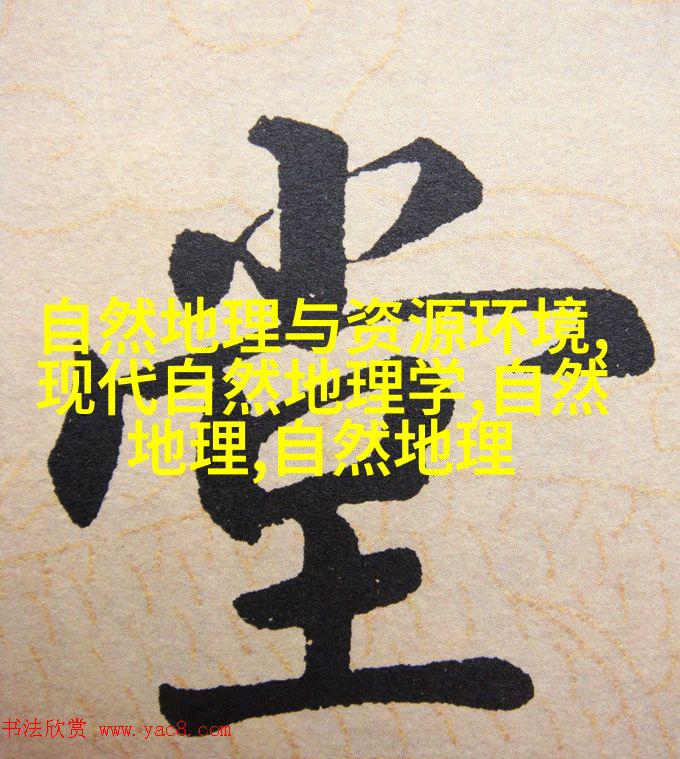 堂
自然地理与资源环境,
现代自然地理学,自然
地理,自然地理
书法欣赏 www.yac8.com